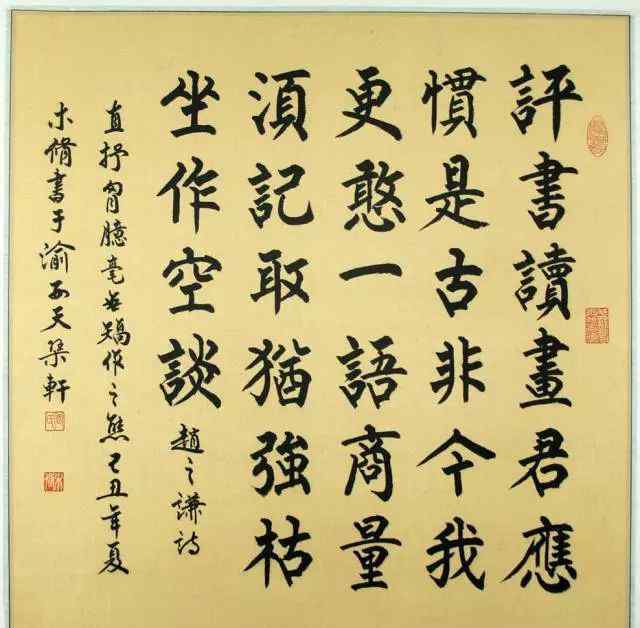 評書讀畫君應
慣是古非今我
更憨一語商量
湏記取猶強枯
坐作空談 趙之謙詩
直抒胷臆毫無矯作之態己丑年夏
脩書于渝西天琹軒